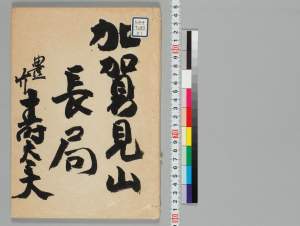 加賀見山
長局
豊竹
寿太夫